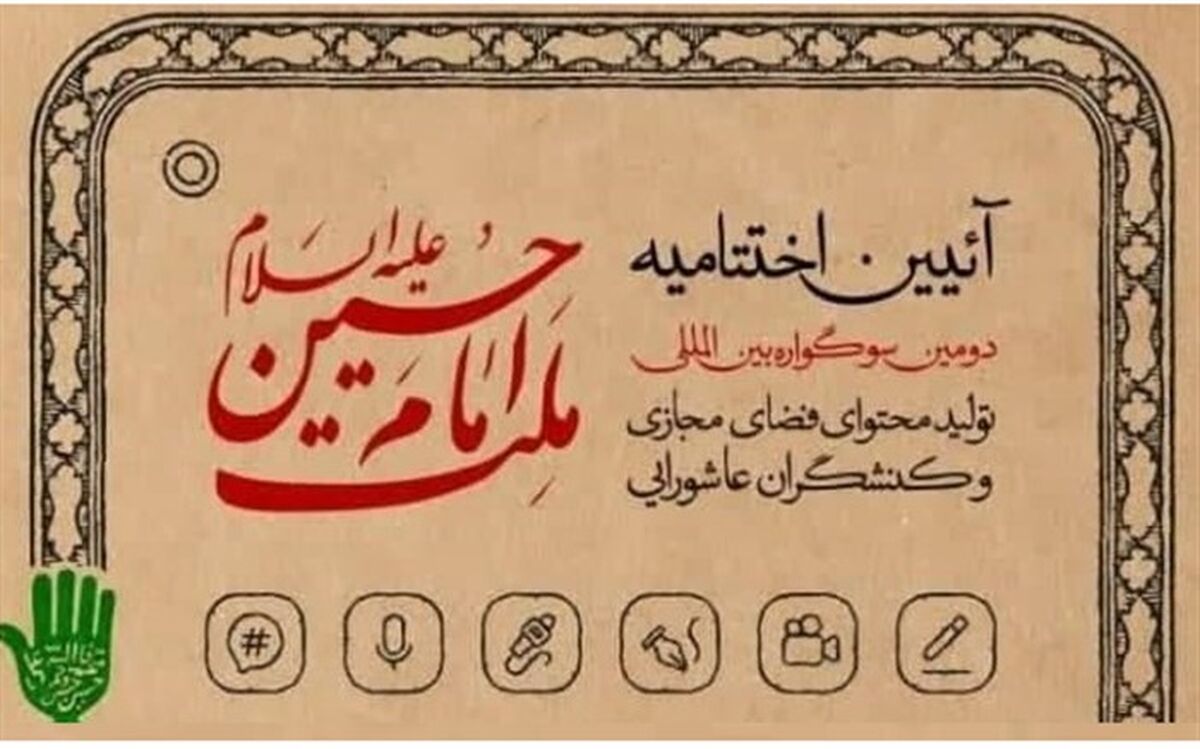 آئین اختتامیه
دومین سوگواره بین المللی
تولید محتوای فضای مجازی
و کنشگران عاشورایی
ملت امام حسین علیه السلام
#